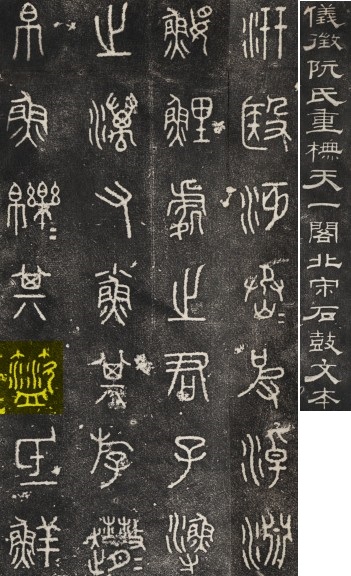 儀徵阮氏重橅天一閣北宋石鼓文本
汧殹沔烝皮淖淵
鰋鯉處之君子漁
之澫又小魚其斿
帛魚皪其盜氐鮮